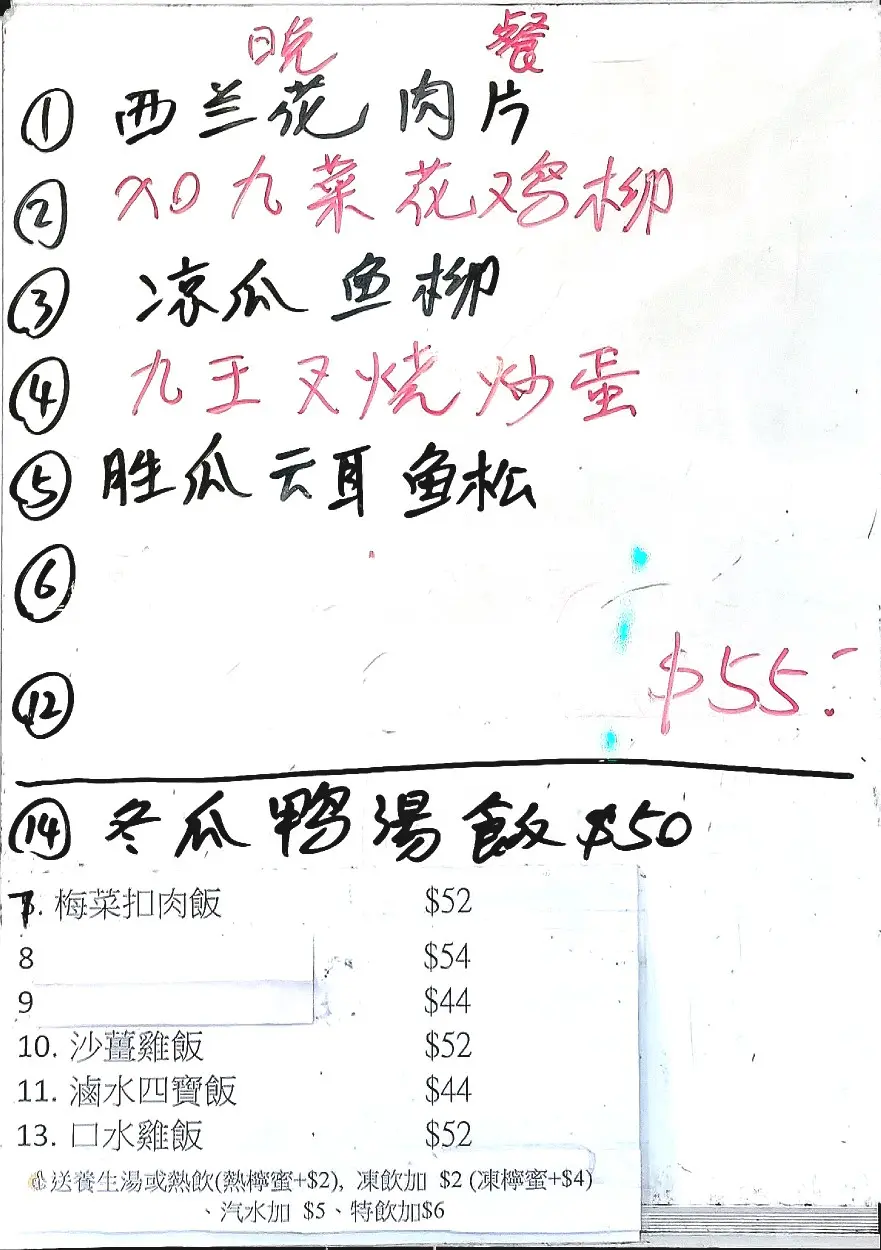 晚 餐
① 西兰花肉片
② XO九菜花鸡柳
③ 凉瓜鱼柳
④ 九王叉烧炒蛋
⑤ 胜瓜云耳鱼松
⑥
$55.-
⑫
⑭ 冬瓜鸭湯飯 $50
7. 梅菜扣肉飯 $52
8 $54
9 $44
10. 沙薑雞飯 $52
11. 滷水四寶飯 $44
13. 口水雞飯 $52
送養生湯或熱飲(熱檸蜜+$2), 凍飲加 $2 (凍檸蜜+$4)
、汽水加 $5、特飲加$6